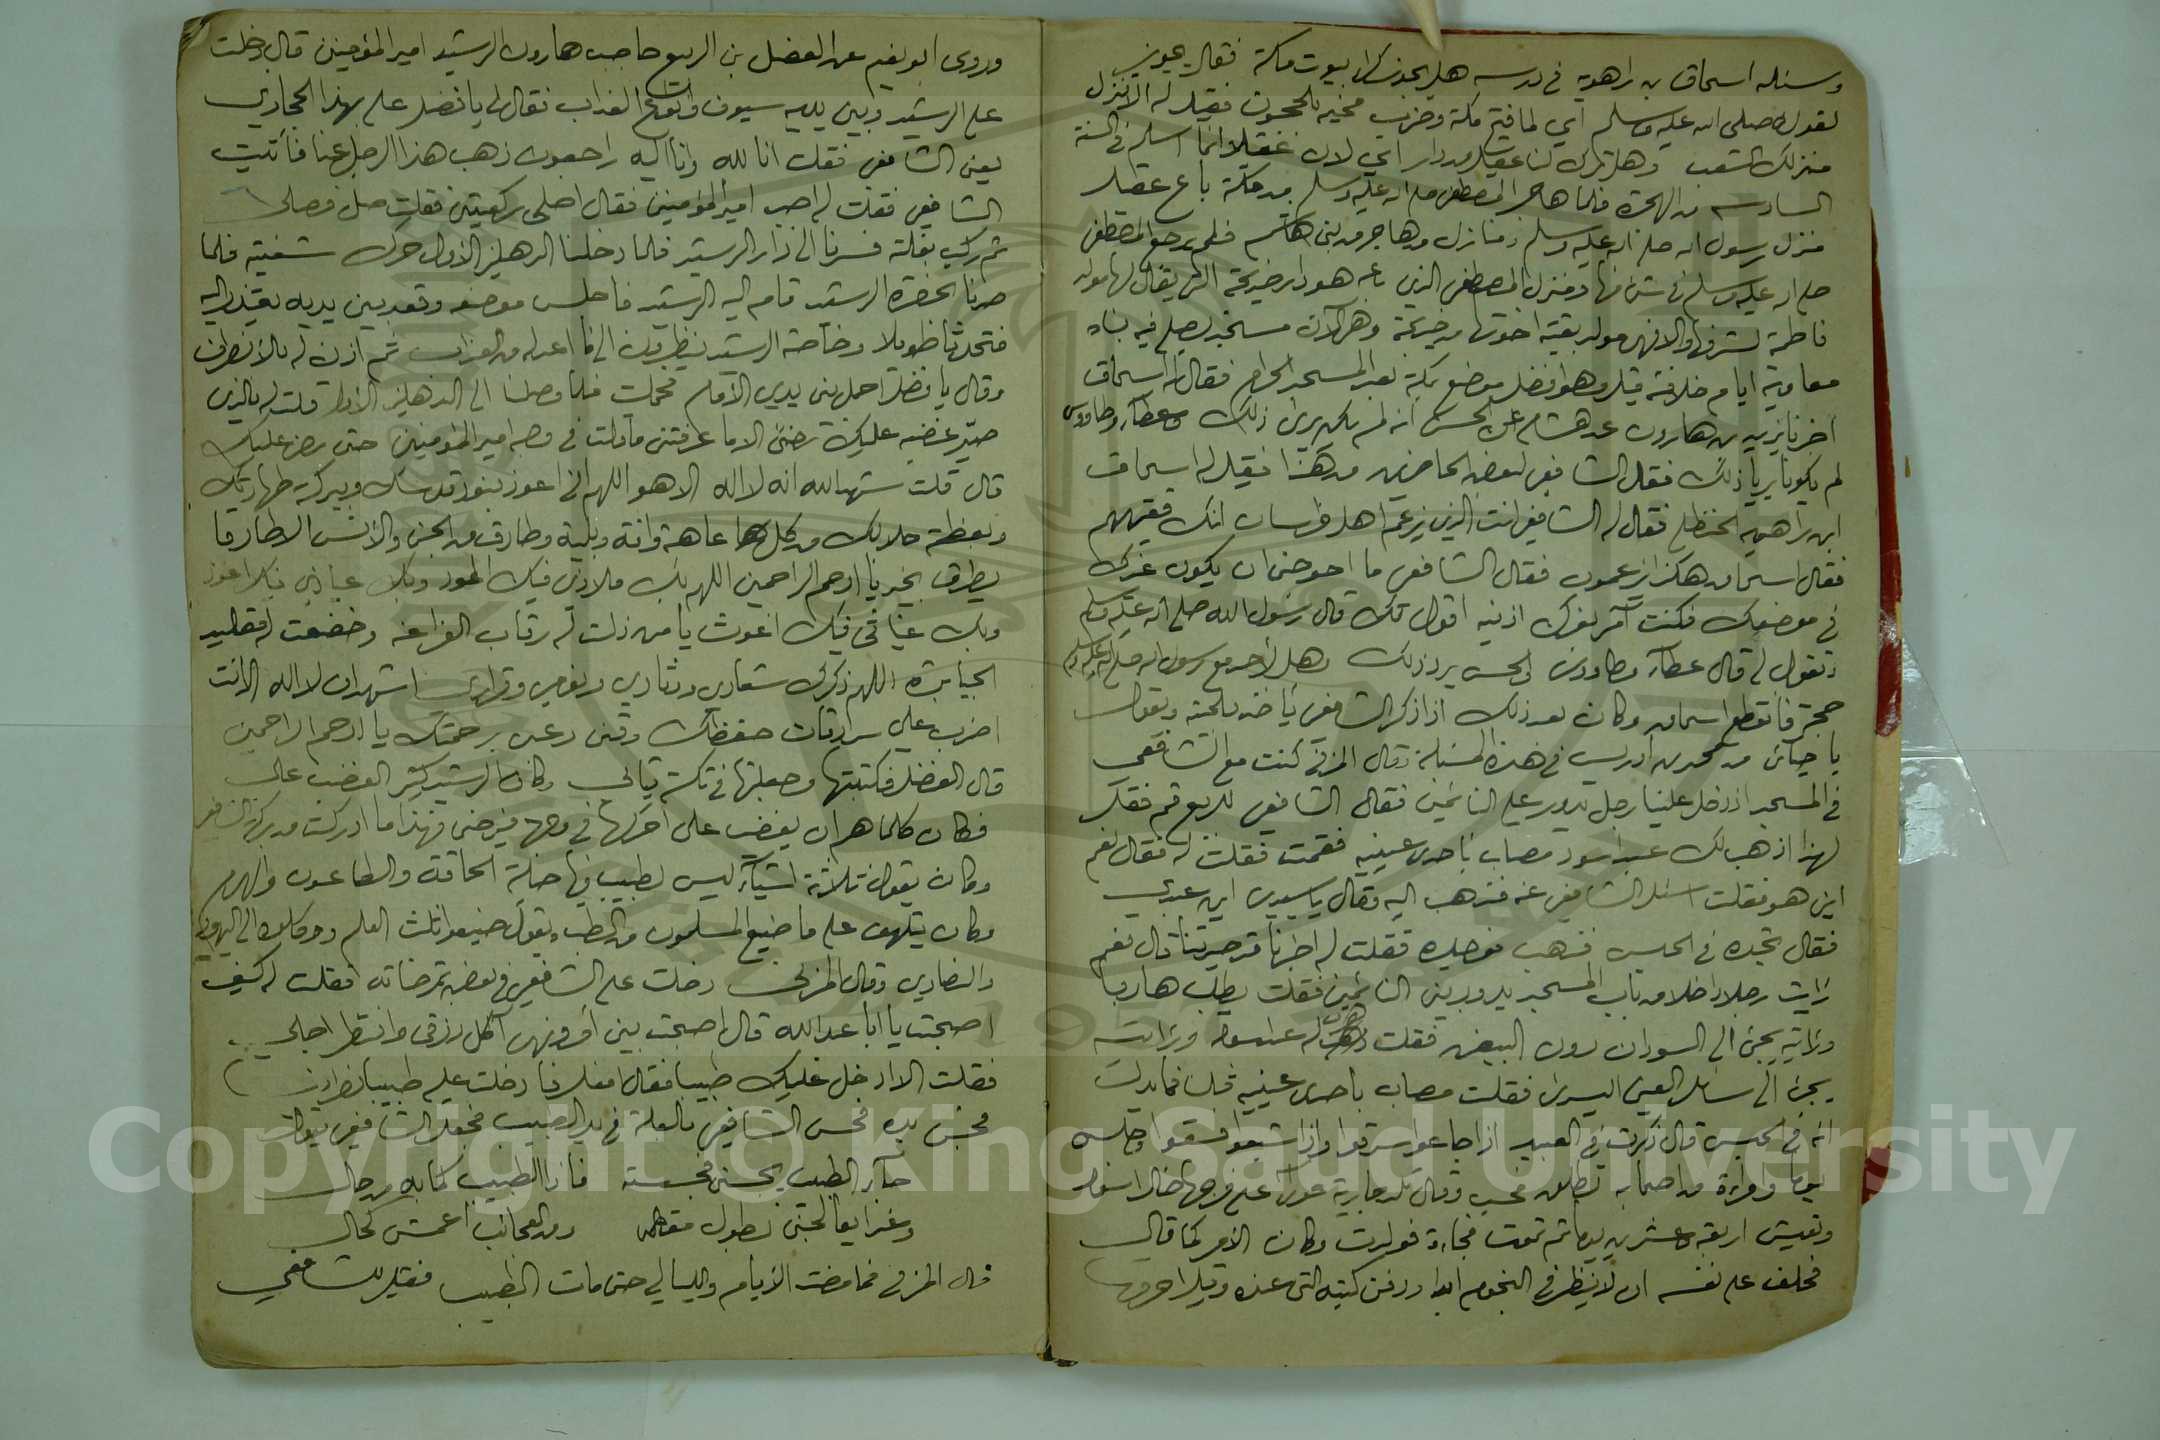 وسئله اسحاق بن راهويه في درسه هل يجوز كراء بيوت مكة فقال يجوز
لقوله صلى الله عليه وسلم اي لما فتح مكة وضرب مخيمه بالحجون فقيل له الا تنزل
منزلك بالشعب وهل ترك لنا عقيل من دار اي لان عقيلا انما اسلم في السنة
السادسة من الهجرة فلما هاجر المصطفى صلى الله عليه وسلم من مكة باع عقيل
منزل رسول الله صلى الله عليه وسلم ومنازل من هاجر من بني هاشم فلم يرجع المصطفى
صلى الله عليه وسلم في شئ منها ومنزل المصطفى الذي باعه هو دار خديجة التي يقال لها مولد
فاطمة لشرفها والا فهي مولد بقية اخوتها من خديجة وهي الآن مسجد يصلى فيه بناه
معاوية ايام خلافته قيل وهو افضل موضع بمكة بعد المسجد الحرام فقال له اسحاق
اخبرنا يزيد بن هارون عن هشام عن الحسن انه لم يكن يرى ذلك وعطاء وطاووس
لم يكونا يريا ذلك فقال الشافعي لبعض الحاضرين من هذا فقيل له اسحاق
ابن راهويه الحنظلي فقال له الشافعي انت الذي يزعم اهل خراسان انك فقيههم
فقال اسحاق هكذا يزعمون فقال الشافعي ما احوجني ان يكون غيرك
في موضعك فكنت آمر بفرك اذنيه اقول لك قال رسول الله صلى الله عليه وسلم
وتقول لي قال عطاء وطاووس والحسن يرد ذلك وهل لأحد مع رسول الله صلى الله عليه وسلم
حجة فانقطع اسحاق وكان بعد ذلك اذا ذكر الشافعي يأخذ بلحيته ويقول
يا حيائي من محمد بن ادريس في هذه المسئلة وقال المزني كنت مع الشافعي
في المسجد اذ دخل علينا رجل يدور على النائمين فقال الشافعي للربيع قم فقل
لهذا اذهب لك عبد اسود مصاب بأحدى عينيه فقمت فقلت له فقال نعم
اين هو فقلت اسئل الشافعي عنه فذهب اليه وقال يا سيدي اين عبدي
فقال تجده في الحبس فذهب فوجده فقلت له اخبرنا قد حيرتنا قال نعم
رأيت رجلا داخلا من باب المسجد يدور بين النائمين فقلت يطلب هاربا
ورأيته يجئ الى السودان دون البيض فقلت هرب له عبد اسود ورأيته
يجئ الى سائل العين اليسرى فقلت مصاب باحدى عينيه قلنا فما يدريك
انه في الحبس قال ذكرت في العبيد اذا جاعوا سرقوا واذا شبعوا فسقوا وجلس
يوما وامرأة من اصحابه تطلق فحسب وقال تلد جارية عوراء على فرجها خال اسود
وتعيش اربعة وعشرين يوما ثم تموت فجاءة فولدت وكان الامر كما قال
فحلف على نفسه ان لا ينظر في النجوم ابدا ودفن كتبه التي عنده وقيل احرقها
وروى ابو نعيم عن الفضل بن الربيع حاجب هارون الرشيد امير المؤمنين قال دخلت
على الرشيد وبين يديه سيوف وانواع العذاب فقال لي يا فضل علي بهذا الحجازي
يعني الشافعي فقلت انا لله وانا اليه راجعون ذهب هذا الرجل عنا فأتيت
الشافعي فقلت له اجب امير المؤمنين فقال اصلي ركعتين فقلت صل فصلى
ثم ركب بغلة فسرنا الى دار الرشيد فلما دخلنا الدهليز الاول حرك شفتيه فلما
صرنا بحضرة الرشيد قام اليه الرشيد فاجلس موضعه وقعد بين يديه يعتذر اليه
فتحدثا طويلا وخاصة الرشيد ينظرون الى ما اعد له من العذاب ثم اذن له بالانصراف
وقال يا فضل احمل بين يدي الامام فحملت فلما وصلنا الى الدهليز الاول قلت له بالذي
صير غضبه عليك رضى الا ما عرفتني ما قلت في وجه امير المؤمنين حتى رضي عليك
قال قلت شهد الله انه لا اله الا هو اللهم اني اعوذ بنور قدسك وببركة طهارتك
وبعظمة جلالك من كل عاهة وآفة وبلية وطارق من الجن والانس الا طارقا
يطرق بخير يا ارحم الراحمين اللهم بك ملاذي فبك الوذ وبك عياذي فبك اعوذ
وبك غياثي فبك اغوث يا من ذلت له رقاب الفراعنة وخضعت له مقاليد
الجبابرة اللهم ذكرك شعاري ودثاري ونومي وقراري اشهد ان لا اله الا انت
اضرب علي سرادقات حفظك وقني رعبي برحمتك يا ارحم الراحمين
قال الفضل فكتبتها وجعلتها في تكة قبائي وكان الرشيد كثير الغضب علي
فكان كلما هم ان يغضب علي احركها في وجهه فيرضى فهذا ما ادركت من بركة الشافعي
وكان يقول ثلاثة اشياء ليس لطبيب فيها حيلة الحماقة والطاعون والهرم
وكان يتلهف على ما ضيع المسلمون من الطب ويقول ضيعوا ثلث العلم ووكلوه الى اليهود
والنصارى وقال المزني دخلت على الشافعي في بعض مرضاته فقلت له كيف
اصبحت يا ابا عبد الله قال اصبحت بين امر ونهي آكل رزقي وانتظر اجلي
فقلت الا ادخل عليك طبيبا فقال افعل فأدخلت عليه طبيبا نصرانيا
فجس يده فحس الشافعي بالعلة في يد الطبيب فجعل الشافعي يقول
جاء الطبيب يجسني فجسسته فاذا الطبيب لما به من حال
وغدا يعالجني بطول سقامه ومن العجائب اعمش كحال
قال المزني فما مضت الايام والليالي حتى مات الطبيب فقيل للشافعي
Copyright © King Saud University